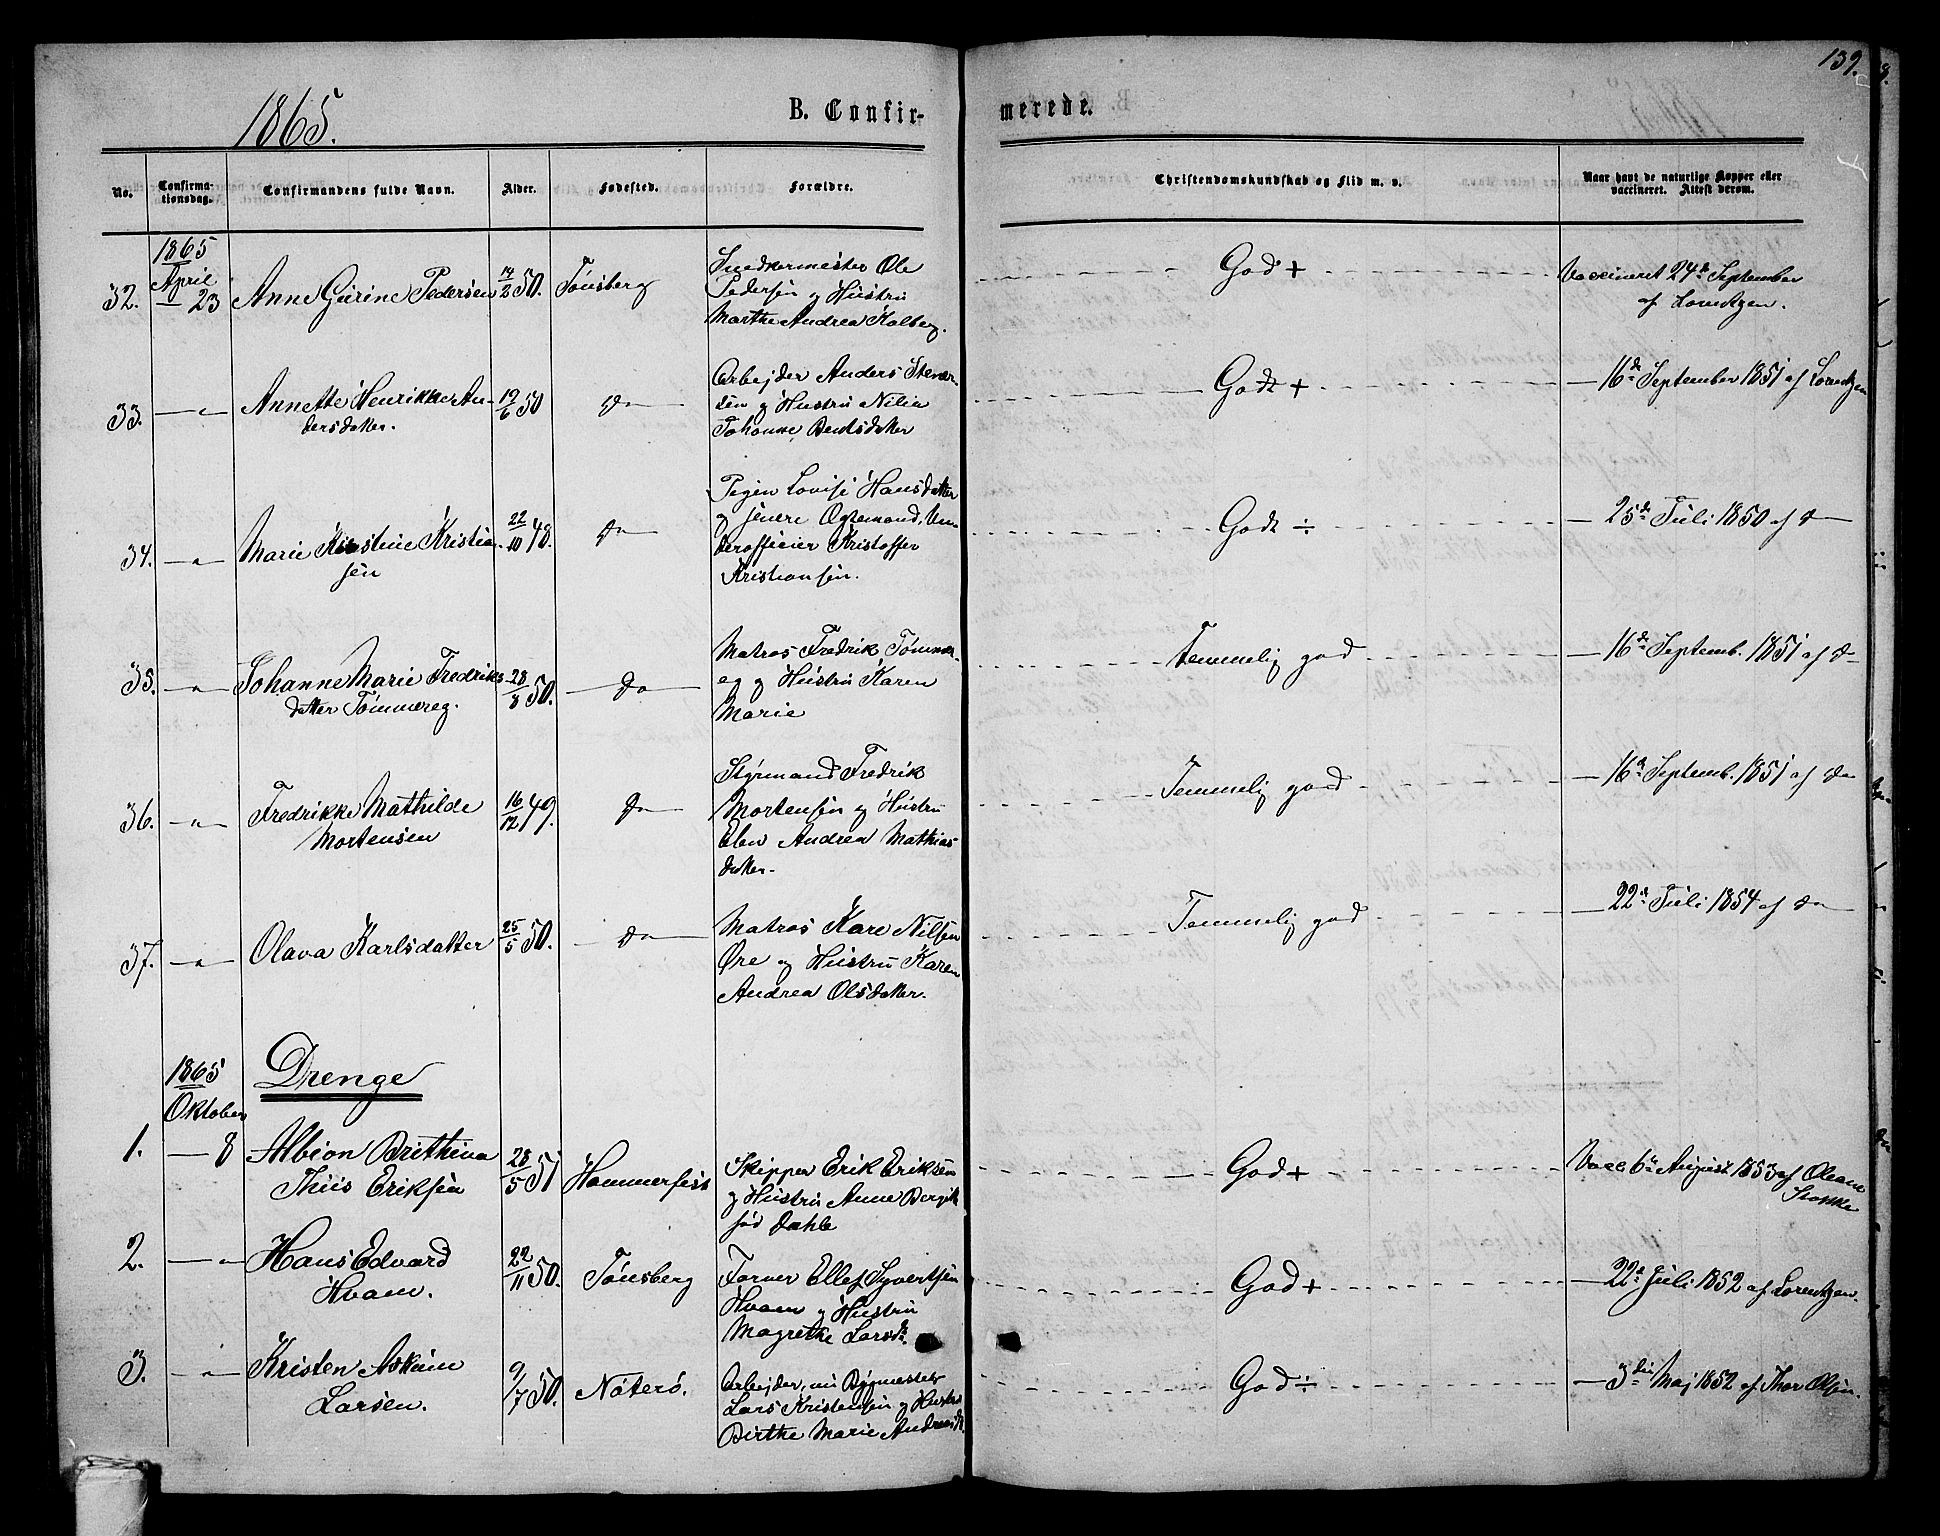 139.
1865.
B. Confir-
merede.
No.
Confirma-
tionsdag.
Confirmandens fulde Navn.
Alder.
Fødested.
Forældre.
Christendomskundskab og Flid m. v.
Naar havt de naturlige Kopper eller
vaccineret. Attest derom.
1865
April
32. — 23 Anne Gurine Pedersen 14/2 50. Tønsberg
Snedkermester Ole
Pedersen og Hustru
Marthe Andrea Kolberg.
God +
Vaccineret 24de September
af Lorentzen.
33. — " — Annette Henrikke An-
dersdatter. 19/6 50 Do
Arbejder Anders Stener-
sen og Hustru Nilia
Johanne Bentsdatter
Godt +
— 16de September 1851 af Lorentzen
34. — " — Marie Kirstine Kristian-
sen 22/10 48. Do
Pigen Lovise Hansdatter
og senere Ægtemand, Un-
derofficier Kristoffer
Kristiansen.
Godt ÷
— 25de Juli 1850 af Do
35. — " — Johanne Marie Fredriks-
datter Tømmereg. 28/8 50. Do
Matros Fredrik Tømmer-
eg og Hustru Karen
Marie
Temmelig god
— 16de Septemb. 1851 af Do
36. — " — Fredrikke Mathilde
Mortensen 16/12 49. Do
Styrmand Fredrik
Mortensen og Hustru
Elen Andrea Mathias-
datter.
Temmelig god
— 16de Septemb. 1851 af Do
37. — " — Olava Karlsdatter 25/5 50. Do
Matros Karl Nilsen
Øre og Hustru Karen
Andrea Olsdatter.
Temmelig god
— 22de Juli 1854 af Do
1865
Oktober
Drenge
1. — 8 Albion Brithina
Thiis Eriksen 28/5 51 Hammerfest
Skipper Erik Eriksen
og Hustru Anne Bergit
fød Dahle
God +
Vacc 6te August 1853 af Oleane
2. — " Hans Edvard
Hvam. 22/11 50. Tønsberg
Farver Ellef Syvertsen
Hvam og Hustru
Magrethe Larsdt.
God +
— 22de Juli 1852 af Lorentzen.
3. — " Kristen Askim
Larsen. 9/7 50. Nøterø.
Arbejder, nu Bygmester
Lars Kristensen og Hustru
Birthe Marie Andreasdt.
God ÷
— 3die Maj 1852 af Thor Olsen.